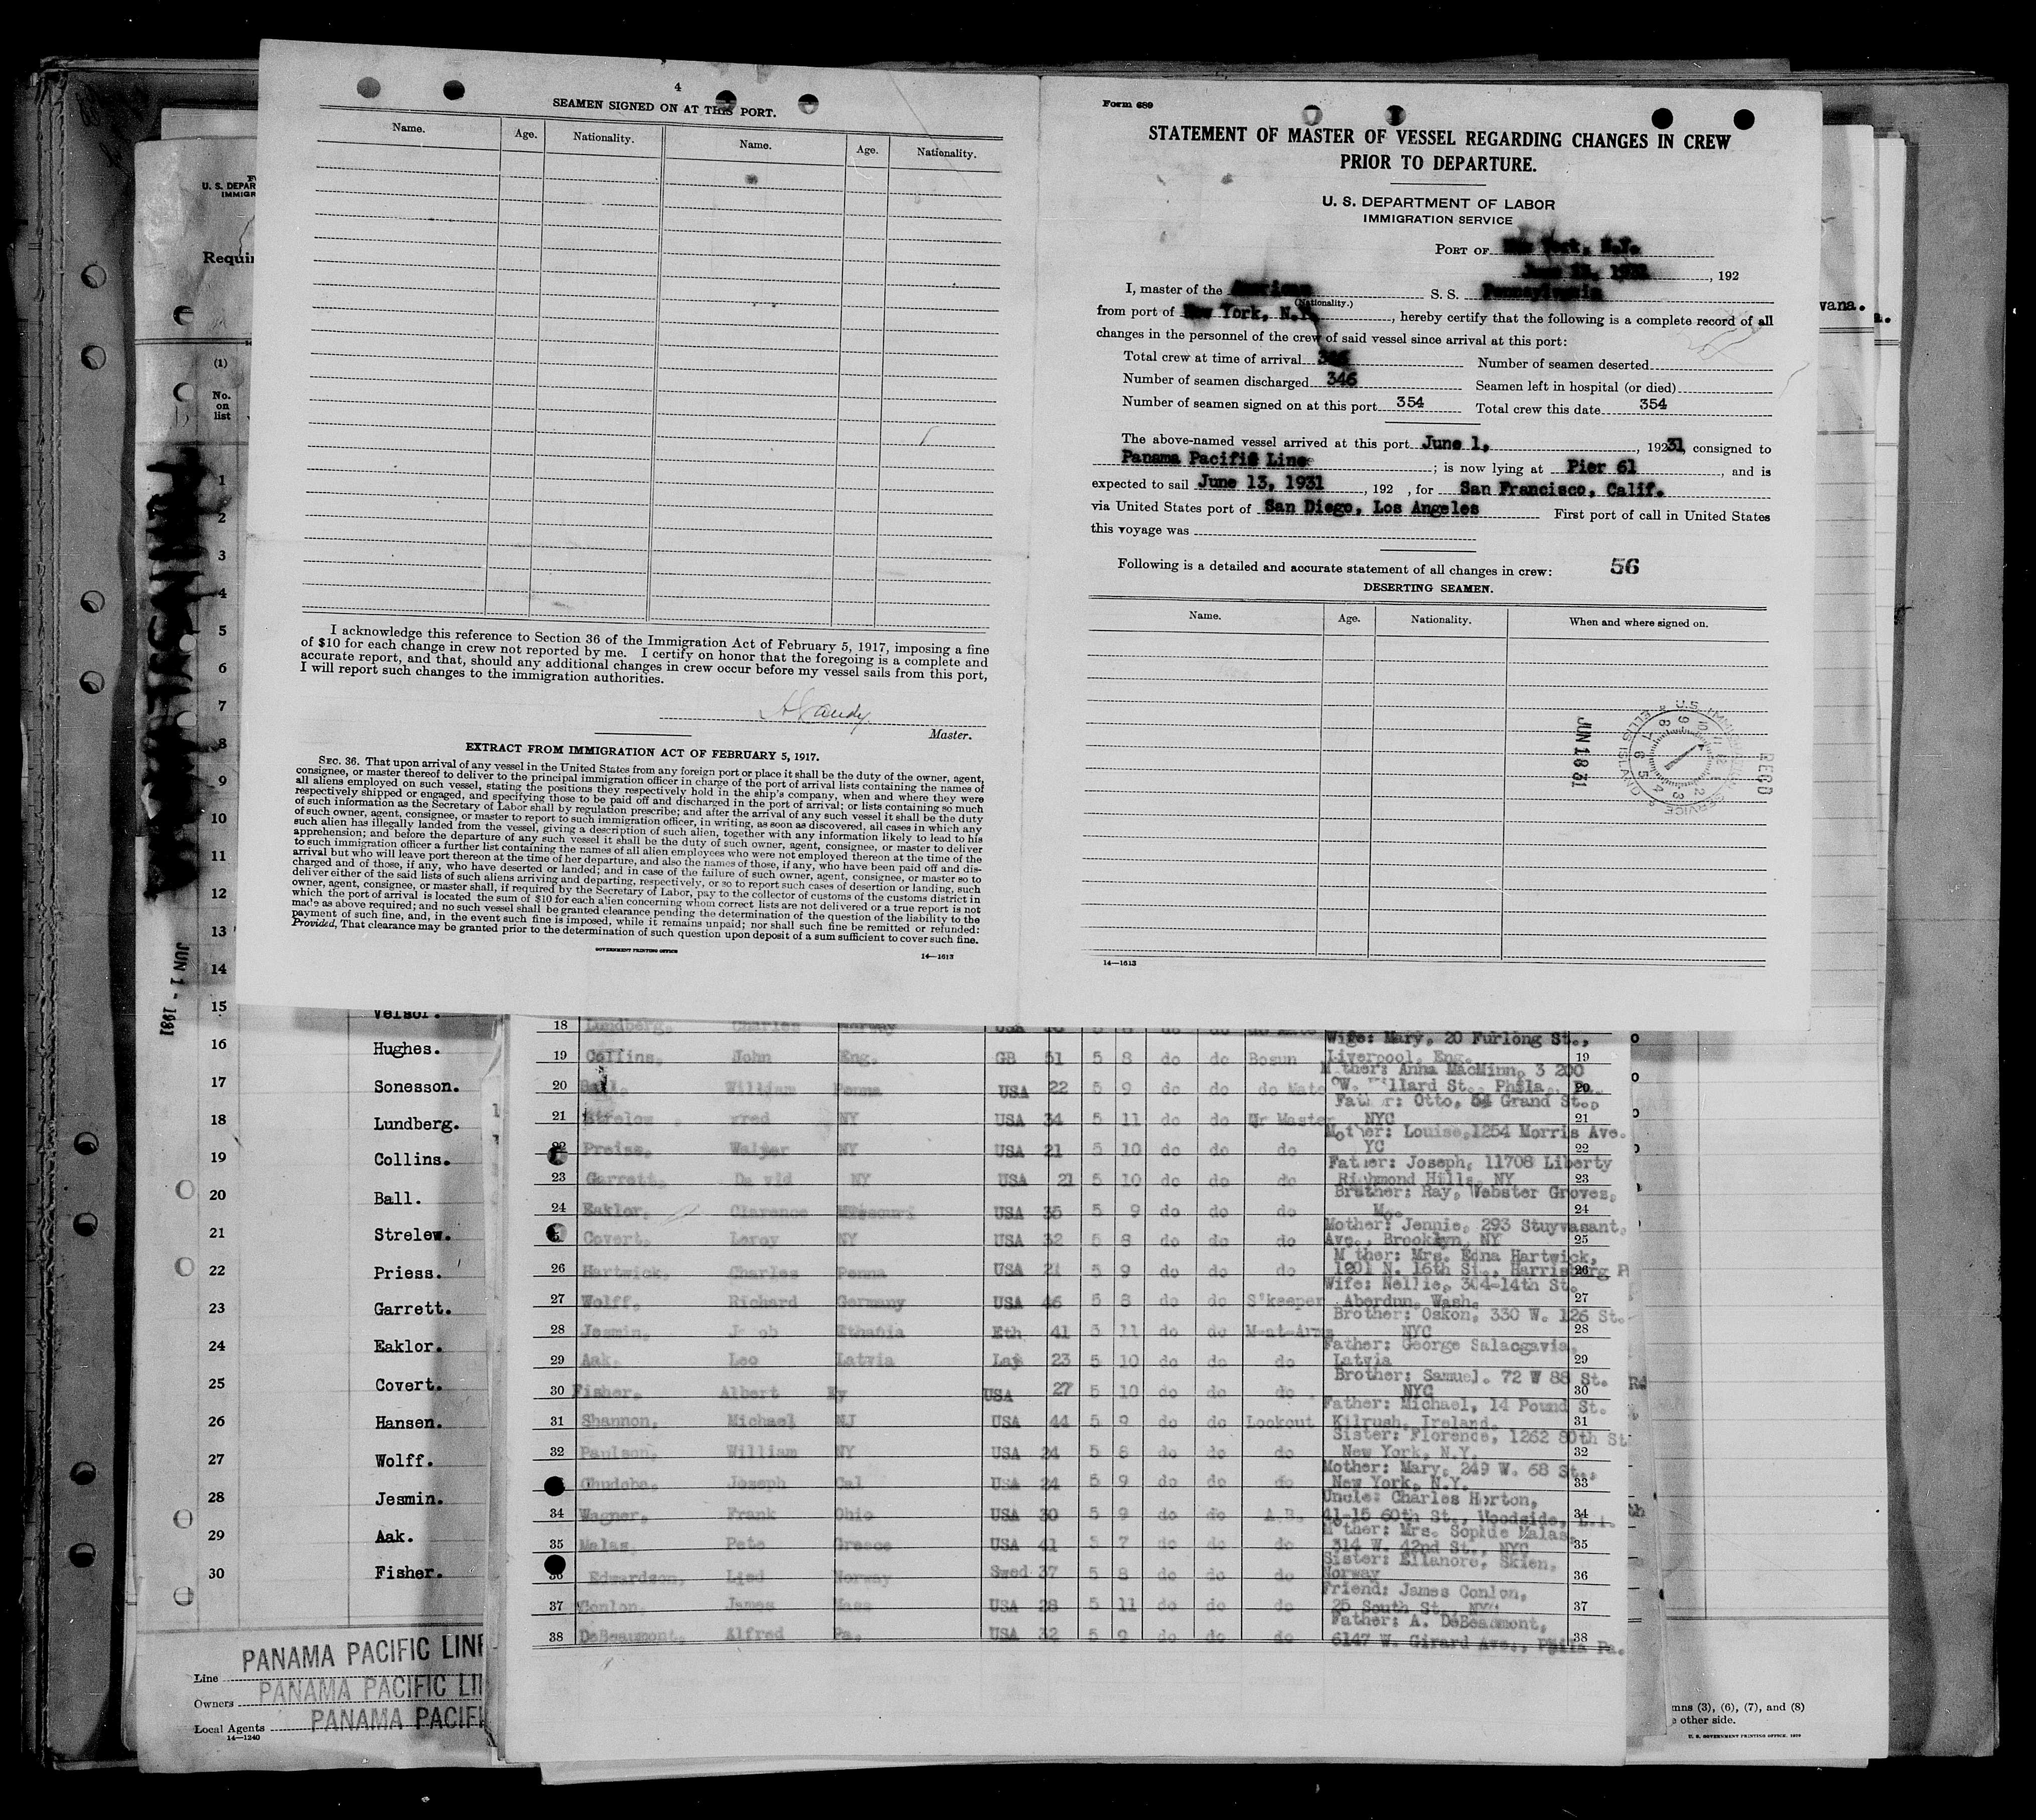 4
SEAMEN SIGNED ON AT THIS PORT.
Name. Age. Nationality. Name. Age. Nationality.
I acknowledge this reference to Section 36 of the Immigration Act of February 5, 1917, imposing a fine
of $10 for each change in crew not reported by me. I certify on honor that the foregoing is a complete and
accurate report, and that, should any additional changes in crew occur before my vessel sails from this port,
I will report such changes to the immigration authorities.
Master.
EXTRACT FROM IMMIGRATION ACT OF FEBRUARY 5, 1917.
SEC. 36. That upon arrival of any vessel in the United States from any foreign port or place it shall be the duty of the owner, agent,
consignee, or master thereof to deliver to the principal immigration officer in charge of the port of arrival lists containing the names of
all aliens employed on such vessel, stating the positions they respectively hold in the ship's company, when and where they were
respectively shipped or engaged, and specifying those to be paid off and discharged in the port of arrival; or lists containing so much
of such information as the Secretary of Labor shall by regulation prescribe; and after the arrival of any such vessel it shall be the duty
of such owner, agent, consignee, or master to report to such immigration officer, in writing, as soon as discovered, all cases in which any
such alien has illegally landed from the vessel, giving a description of such alien, together with any information likely to lead to his
apprehension; and before the departure of any such vessel it shall be the duty of such owner, agent, consignee, or master to deliver
to such immigration officer a further list containing the names of all alien employees who were not employed thereon at the time of the
arrival but who will leave port thereon at the time of her departure, and also the names of those, if any, who have been paid off and dis-
charged and of those, if any, who have deserted or landed; and in case of the failure of such owner, agent, consignee, or master so to
deliver either of the said lists of such aliens arriving and departing, respectively, or so to report such cases of desertion or landing, such
owner, agent, consignee, or master shall, if required by the Secretary of Labor, pay to the collector of customs of the customs district in
which the port of arrival is located the sum of $10 for each alien concerning whom correct lists are not delivered or a true report is not
made as above required; and no such vessel shall be granted clearance pending the determination of the question of the liability to the
payment of such fine, and, in the event such fine is imposed, while it remains unpaid; nor shall such fine be remitted or refunded:
Provided, That clearance may be granted prior to the determination of such question upon deposit of a sum sufficient to cover such fine.
GOVERNMENT PRINTING OFFICE 14—1613
Form 689
STATEMENT OF MASTER OF VESSEL REGARDING CHANGES IN CREW
PRIOR TO DEPARTURE.
U. S. DEPARTMENT OF LABOR
IMMIGRATION SERVICE
PORT OF New York, N.Y.
June 13, 1931, 192
I, master of the American S. S. Pennsylvania
(Nationality.)
from port of New York, N.Y., hereby certify that the following is a complete record of all
changes in the personnel of the crew of said vessel since arrival at this port:
Total crew at time of arrival 346 Number of seamen deserted
Number of seamen discharged 346 Seamen left in hospital (or died)
Number of seamen signed on at this port 354 Total crew this date 354
The above-named vessel arrived at this port June 1, , 1931, consigned to
Panama Pacific Line ; is now lying at Pier 61 , and is
expected to sail June 13, 1931 , 192 , for San Francisco, Calif.
via United States port of San Diego, Los Angeles First port of call in United States
this voyage was
Following is a detailed and accurate statement of all changes in crew: 56
DESERTING SEAMEN.
Name. Age. Nationality. When and where signed on.
JUN 18 31
RECD
14—1613
U. S. DEPAR
IMMIGR
Requir
(1)
No.
on
list
1
2
3
4
5
6
7
8
9
10
11
12
13
14
15 Velsor.
16 Hughes.
17 Sonesson.
18 Lundberg.
19 Collins.
20 Ball.
21 Strelew.
22 Priess.
23 Garrett.
24 Eaklor.
25 Covert.
26 Hansen.
27 Wolff.
28 Jesmin.
29 Aak.
30 Fisher.
JUN 1 - 1931
Line PANAMA PACIFIC LINE
Owners PANAMA PACIFIC LI
Local Agents PANAMA PACIFI
14—1240
18 Lundberg, Charles Norway USA
Wife: Mary, 20 Furlong St.,
19 Collins, John Eng. GB 51 5 8 do do Bosun Liverpool, Eng. 19
M ther: Anna MacMinn, 3 200
20 Ball, William Penna USA 22 5 9 do do do Mate W. Willard St., Phila. Pa. 20
Father: Otto, 54 Grand St.,
21 Strelow fred NY USA 34 5 11 do do Qr Master NYC 21
Mother: Louise,1254 Morris Ave.
22 Preiss, Walter NY USA 21 5 10 do do do YC 22
Father: Joseph, 11708 Liberty
23 Garrett, David NY USA 21 5 10 do do do Richmond Hills, NY 23
Brother: Ray, Webster Groves,
24 Eaklor, Clarence Missouri USA 35 5 9 do do do Mo. 24
Mother: Jennie, 293 Stuyvasant,
Covert, Leroy NY USA 32 5 8 do do do Ave., Brooklyn, NY 25
M ther: Mrs. Edna Hartwick,
26 Hartwick, Charles Penna USA 21 5 9 do do do 1201 N. 16th St., Harrisburg P 26
Wife: Nellie, 304-14th St.
27 Wolff, Richard Germany USA 46 5 8 do do S'keeper Aberdnn, Wash. 27
Brother: Oskon, 330 W. 126 St.
28 Jesmin, Jacob Ethania Eth 41 5 11 do do M-at-Arms NYC 28
Father: George Salacgavia,
29 Aak, Leo Latvia Lat 23 5 10 do do do Latvia 29
Brother: Samuel. 72 W 88 St.
30 Fisher, Albert Ny USA 27 5 10 do do do NYC 30
Father: Michael, 14 Pound St.
31 Shannon, Michael NJ USA 44 5 9 do do Lookout Kilrush, Ireland. 31
Sister: Florence, 1262 80th St
32 Paulson, William NY USA 24 5 8 do do do New York, N.Y. 32
Mother: Mary, 249 W. 68 St.,
Chudoba, Joseph Cal USA 24 5 9 do do do New York, N.Y. 33
Uncle: Charles Horton,
34 Wagner, Frank Ohio USA 30 5 9 do do A.B. 41-15 60th St., Woodside, L.I. 34
M ther: Mrs. Sophie Malas,
35 Malas, Pete Greece USA 41 5 7 do do do 314 W. 42nd St., NYC 35
Sister: Ellanore, Skien,
36 Edwardson, Lied Norway Swed 37 5 8 do do do Norway 36
Friend: James Conlon,
37 Conlon James Mass USA 28 5 11 do do do 25 South St. NYC 37
Father: A. DeBeaumont,
38 DeBeaumont, Alfred Pa. USA 32 5 9 do do do 6147 W. Girard Ave., Phila Pa. 38
vana.
mns (3), (6), (7), and (8)
e other side.
U. S. GOVERNMENT PRINTING OFFICE. 1929